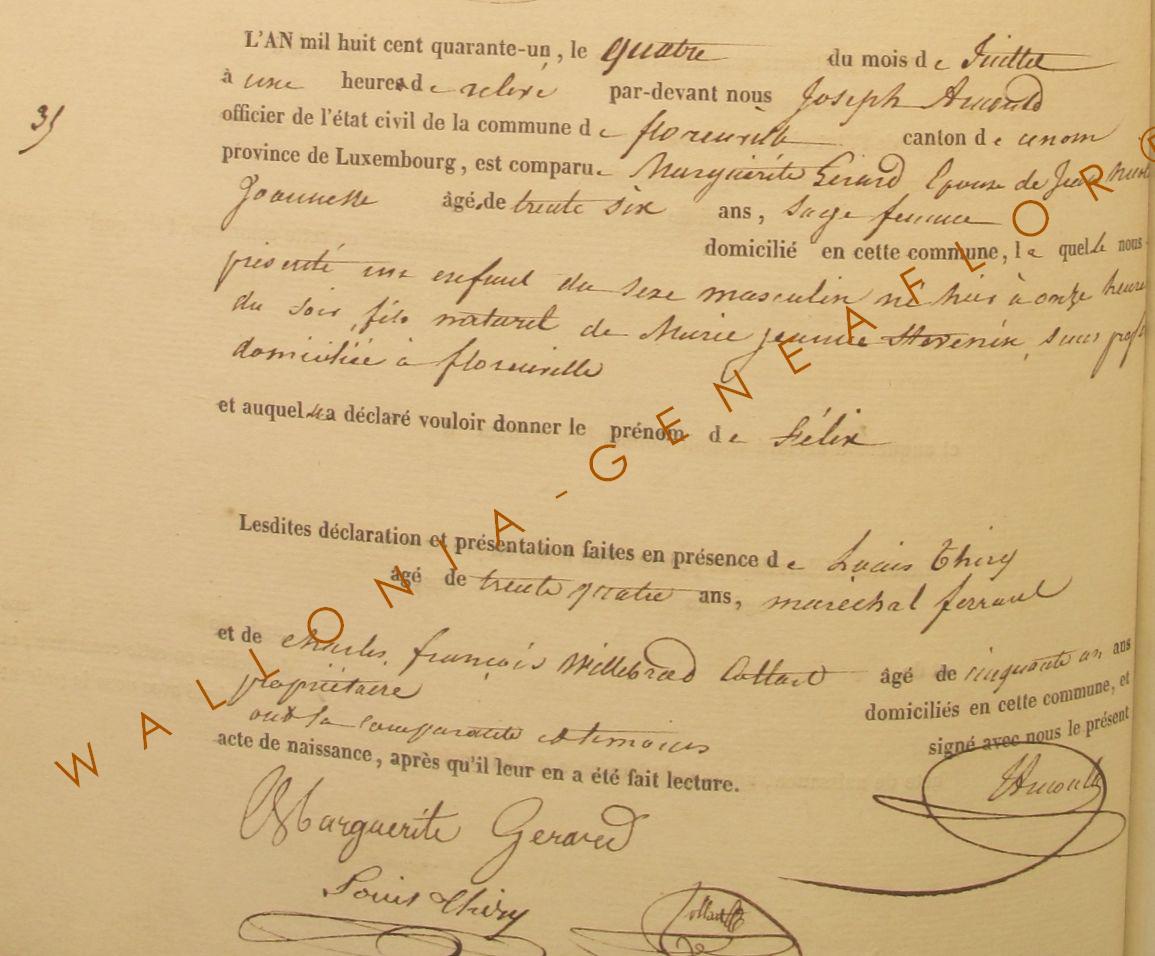 L'AN mil huit cent quarante-un, le quatre du mois de Juillet
à une heure de relevé par-devant nous Joseph Arnould
35
officier de l'état civil de la commune de florenville canton de cenom
province de Luxembourg, est comparue Marguérite Gérard Epouse de Jean
Joannesse âgé de trente six ans, sage femme
domicilié en cette commune, laquelle nous
présenté un enfant du sexe masculin né hier à onze heure
du soir, fils naturel de Marie jeanne Stevenin, sans
domiciliée à florenville
et auquel a déclaré vouloir donner le prénom de Félix
Lesdites déclaration et présentation faites en présence de Louis Thiry
âgé de trente quatre ans, maréchal ferrant
et de Charles françois Willebrod Collard âgé de cinquante un ans
propriétaire domiciliés en cette commune, et
ont la comparante et témoins signé avec nous le présent
acte de naissance, après qu'il leur en a été fait lecture.
Arnould
Marguerite Gerard
Louis Thiry
Collard
WALLONIA-GENEAFLOR®